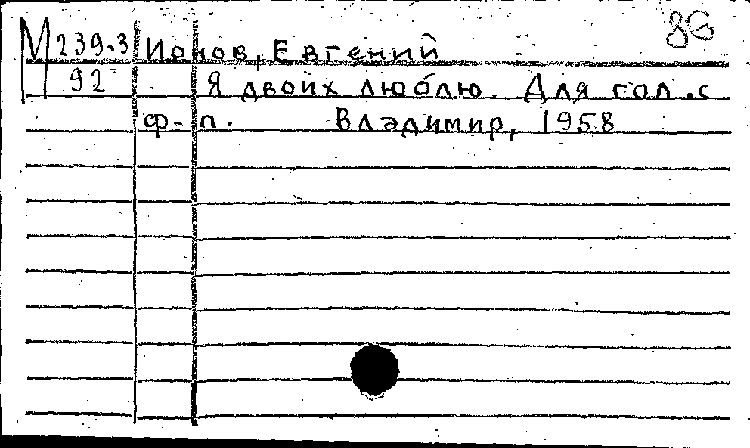 80
М 239-3 Ионов, Евгений
92 Я двоих люблю. Для гол. с
ф-п. Владимир, 1958